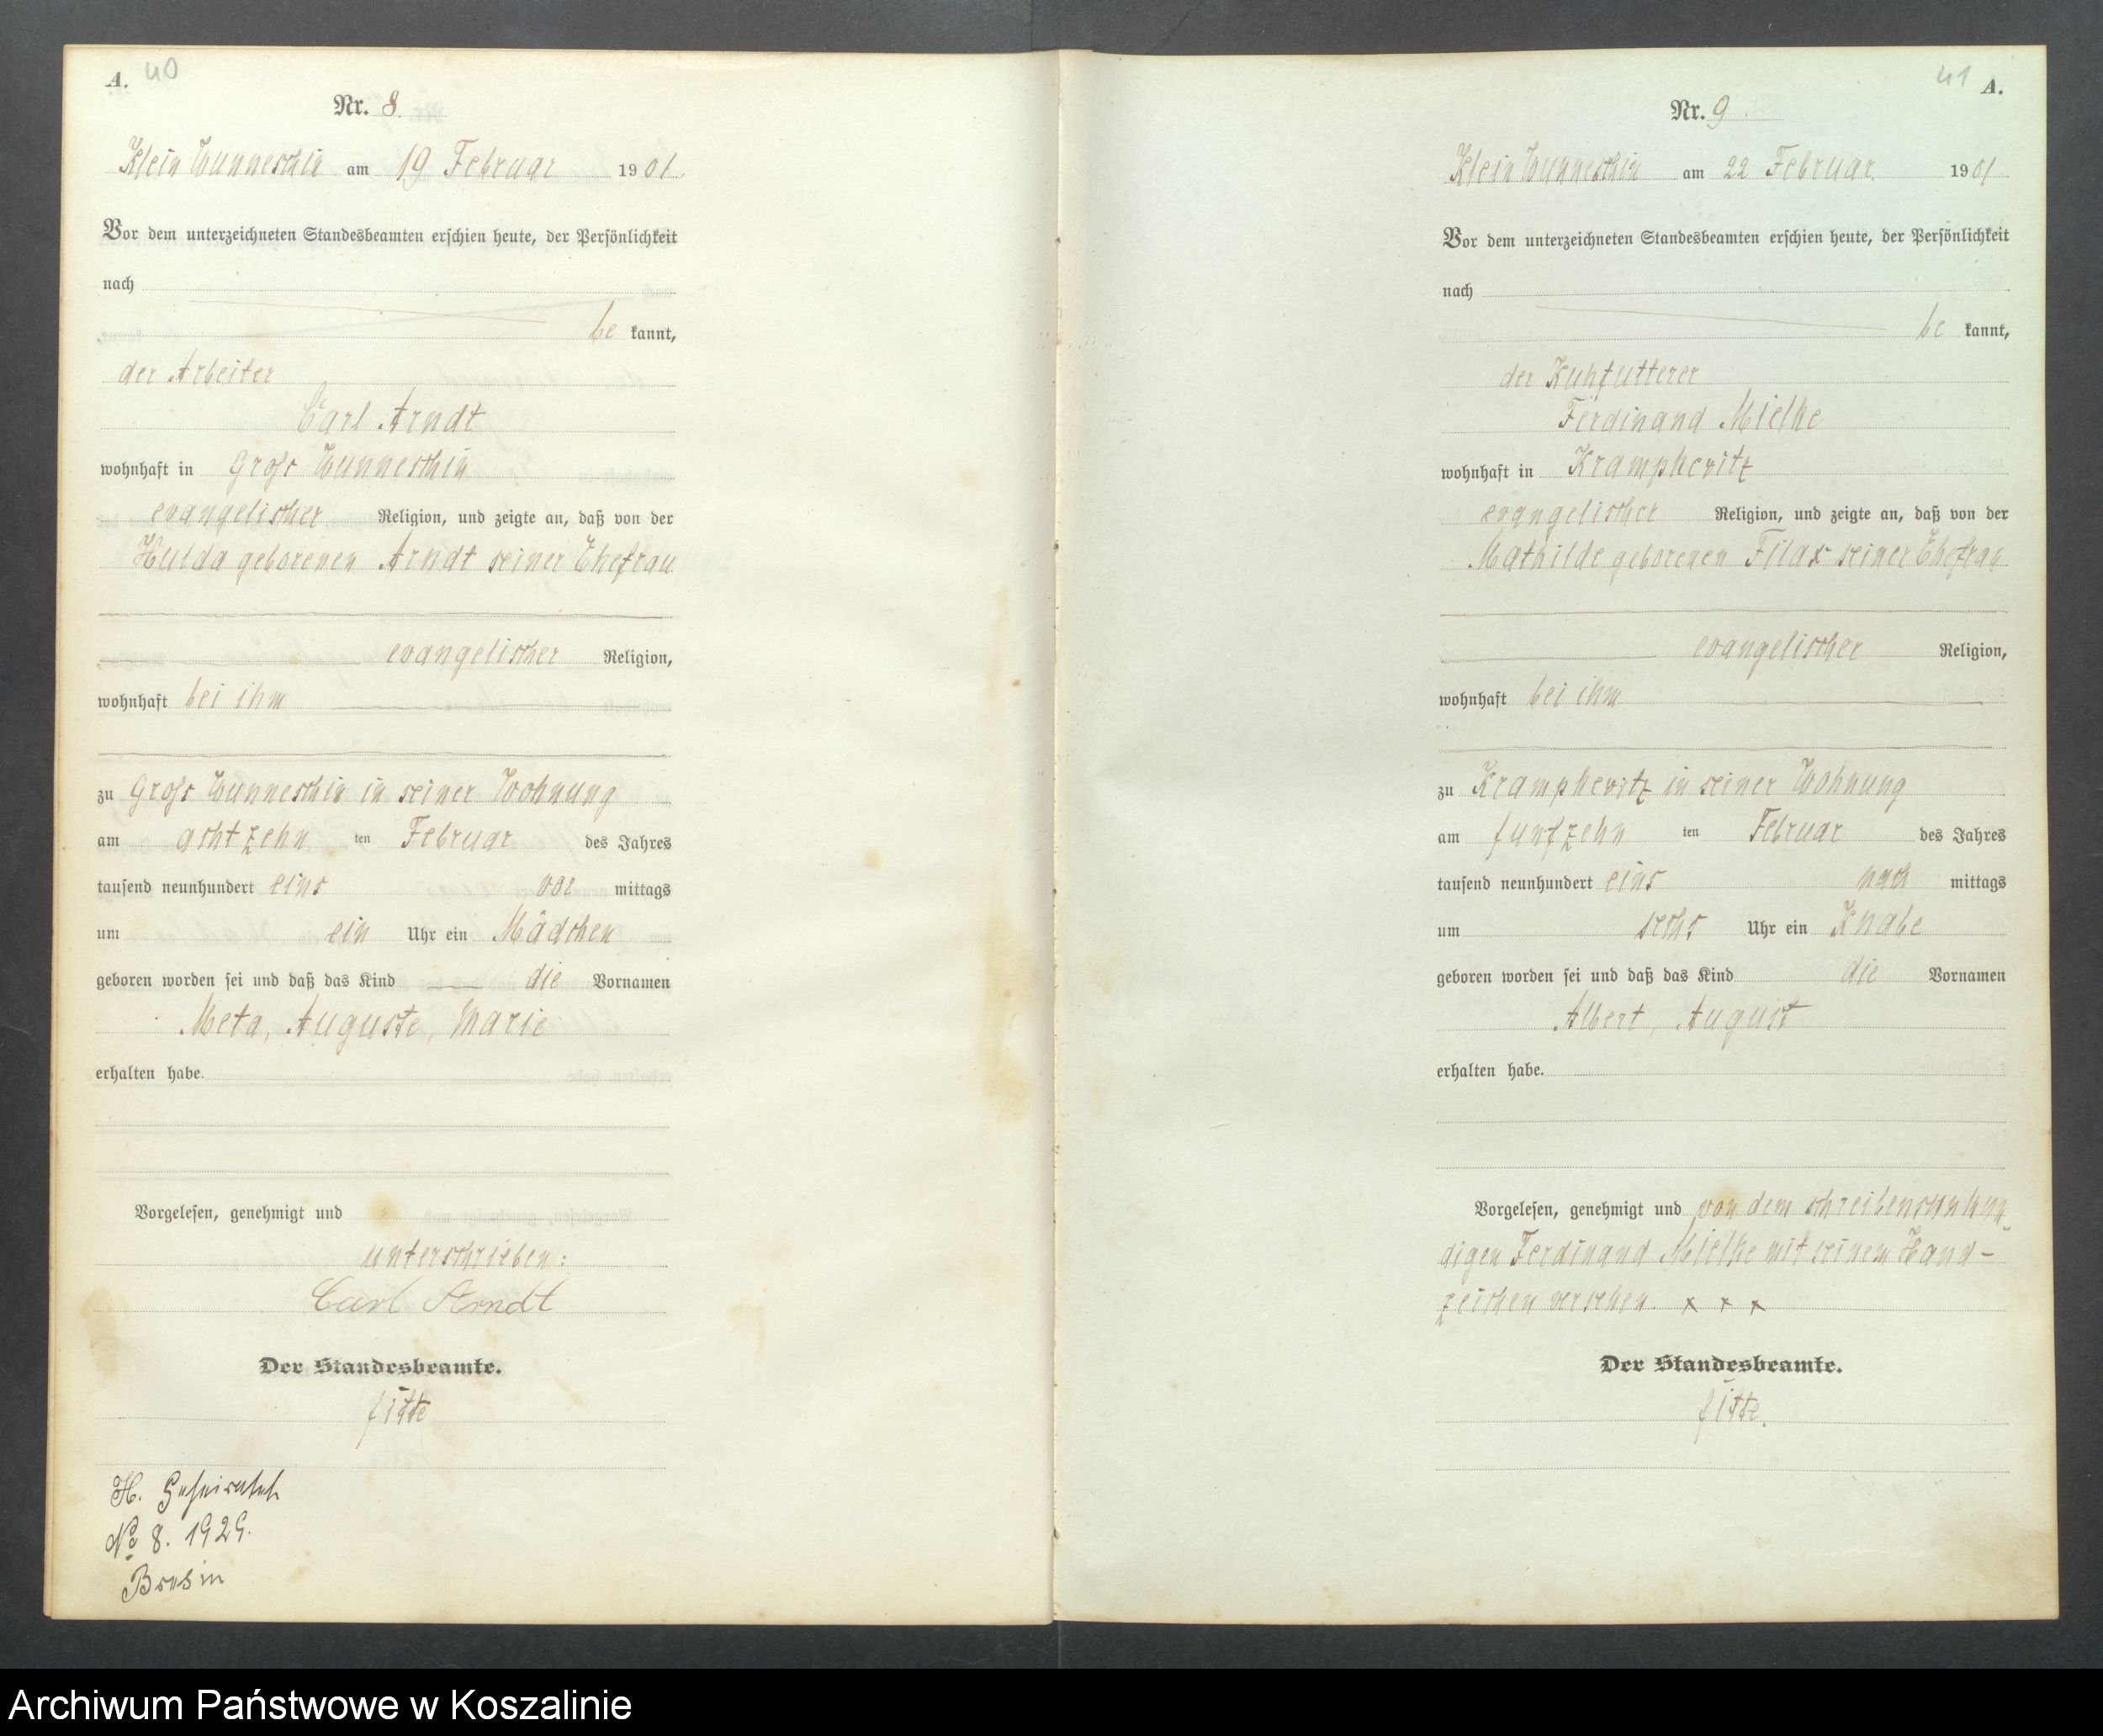 A. 40
Nr. 8.
Klein Wunneschin am 19 Februar 1901.
Vor dem unterzeichneten Standesbeamten erschien heute, der Persönlichkeit
nach
be kannt,
der Arbeiter
Carl Arndt
wohnhaft in Gross Wunneschin
evangelischer Religion, und zeigte an, daß von der
Hulda geborenen Arndt seiner Ehefrau
evangelischer Religion,
wohnhaft bei ihm
zu Gross Wunneschin in seiner Wohnung
am achtzehn ten Februar des Jahres
tausend neunhundert eins vor mittags
um ein Uhr ein Mädchen
geboren worden sei und daß das Kind die Vornamen
Meta, Auguste, Marie
erhalten habe.
Vorgelesen, genehmigt und
unterschrieben:
Carl Arndt
Der Standesbeamte.
H. Geheiratet
No 8. 1929.
41 A.
Nr. 9.
Klein Wunneschin am 22 Februar 1901
Vor dem unterzeichneten Standesbeamten erschien heute, der Persönlichkeit
nach
be kannt,
der Kuhfutterer
Ferdinand Mielke
wohnhaft in Krampkewitz
evangelischer Religion, und zeigte an, daß von der
Mathilde geborenen Filax seiner Ehefrau
evangelischer Religion,
wohnhaft bei ihm
zu Krampkewitz in seiner Wohnung
am funfzehn ten Februar des Jahres
tausend neunhundert eins nach mittags
um sechs Uhr ein Knabe
geboren worden sei und daß das Kind die Vornamen
Albert, August
erhalten habe.
Vorgelesen, genehmigt und von dem schreibensunkun-
digen Ferdinand Mielke mit seinem Hand-
zeichen versehen. x x x
Der Standesbeamte.
Archiwum Państwowe w Koszalinie